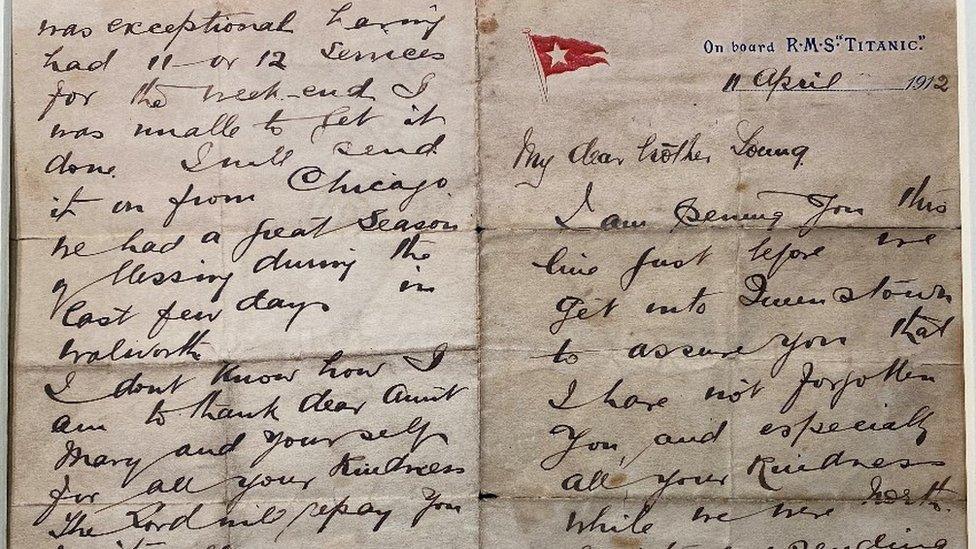 On board R.M.S. "TITANIC."
11 April 1912
My dear brother Young
I am penning you this
line just before we
get into Queenstown
to assure you that
I have not forgotten
you, and especially
all your kindness
while we were North.
was exceptional having
had 11 or 12 services
for the week-end I
was unable to get it
done. I will send
it on from Chicago.
We had a great season
of blessing during the
last few days in
Walworth
I dont know how I
am to thank dear Aunt
Mary and yourself
for all your kindness
The Lord will repay you